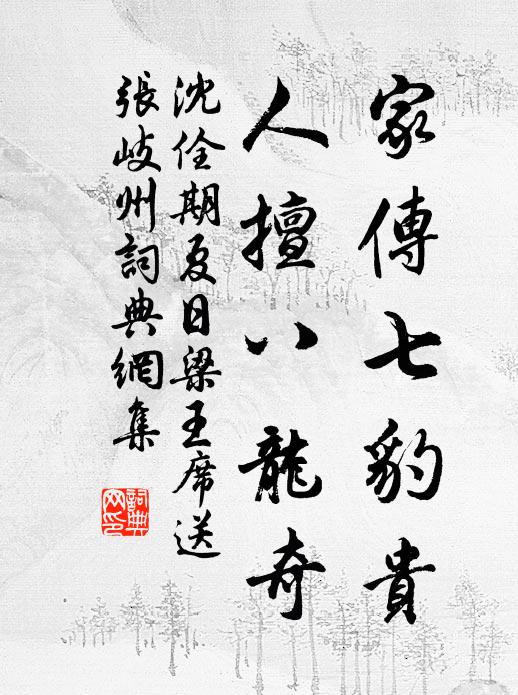 家傳七豹貴
人擅八龍奇
沈佺期夏日梁王席送
張岐州詞典網集
詞典
网印